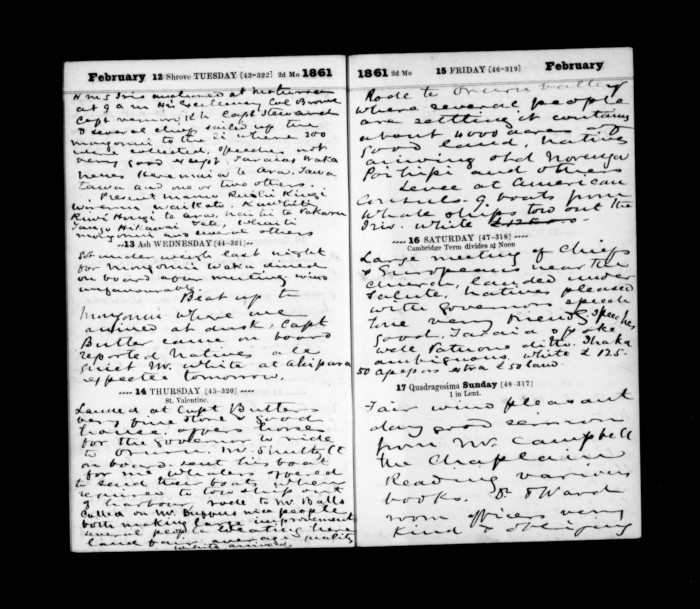 February 12 Shrove TUESDAY [43-322] 2d Mo 1861
H M S Iris anchored at
at 9 a m His Excellency Col Browne
Capt Capt Steward
& several chiefs sailed up the
to the where 200
were collected, speeches not
very good except Waka
Nenes te Ara. Tawa
tawa and one or two others.
Present Kingi
Wiremu
Hongi te
Tango Hikawai Tete,
and several others
13 Ash WEDNESDAY [44-321]
Got under weigh last night
for Mongonui Waka dined
on board after meeting wind
unfavourable.
Beat up to
Mongonui where we
arrived at dusk, Capt
Butler came on board
reported Natives all
quiet Mr. White at Ahipara
expected tomorrow.
14 THURSDAY [45-320]
St. Valentine.
Landed at Capt Butlers
very fine store & good
house, offers horse
for the Governor to ride
to Oruru. Mr.
on board sent his boat
for me whalers offered
to send their boats when
required to tow ship out
of harbour, rode to Mr Balls
called on Mr nice people
both making large improvements
several people their
land fair average quality
White arrived
1861 2d Mo 15 FRIDAY [46-319] February
Rode to Oruru valley
where several people
are settling it contains
about 4000 acres of
good land, natives
and others
Levee at American
Consuls. 9 boats from
Whale ships tow out the
Iris. White
16 SATURDAY [47-318]
Cambridge Term divides at Noon
Large meeting of Chiefs
& Europeans near the
church, landed under
salute, natives pleased
with Governors speech
tone very friendly speeches
good. spoke
well Patuone ditto.
ambiguous. White £125-
50 extra £50 land.
17 Quadragesima Sunday [48-317]
1 in Lent.
Fair wind pleasant
day good sermon
from Mr. Campbell
the Chaplain
Reading various
books. Ward
room officers very
kind & obliging